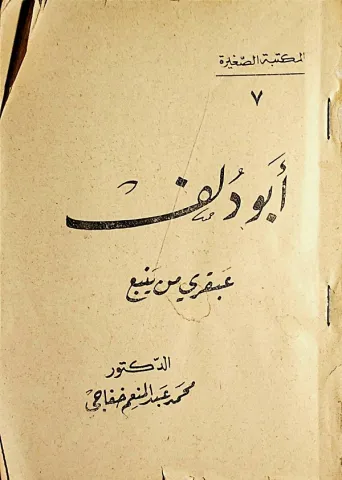 المكتبة الصغيرة
٧
أبو دلف
عبقري من ينبع
الدكتور
محمد عبد المنعم خفاجي